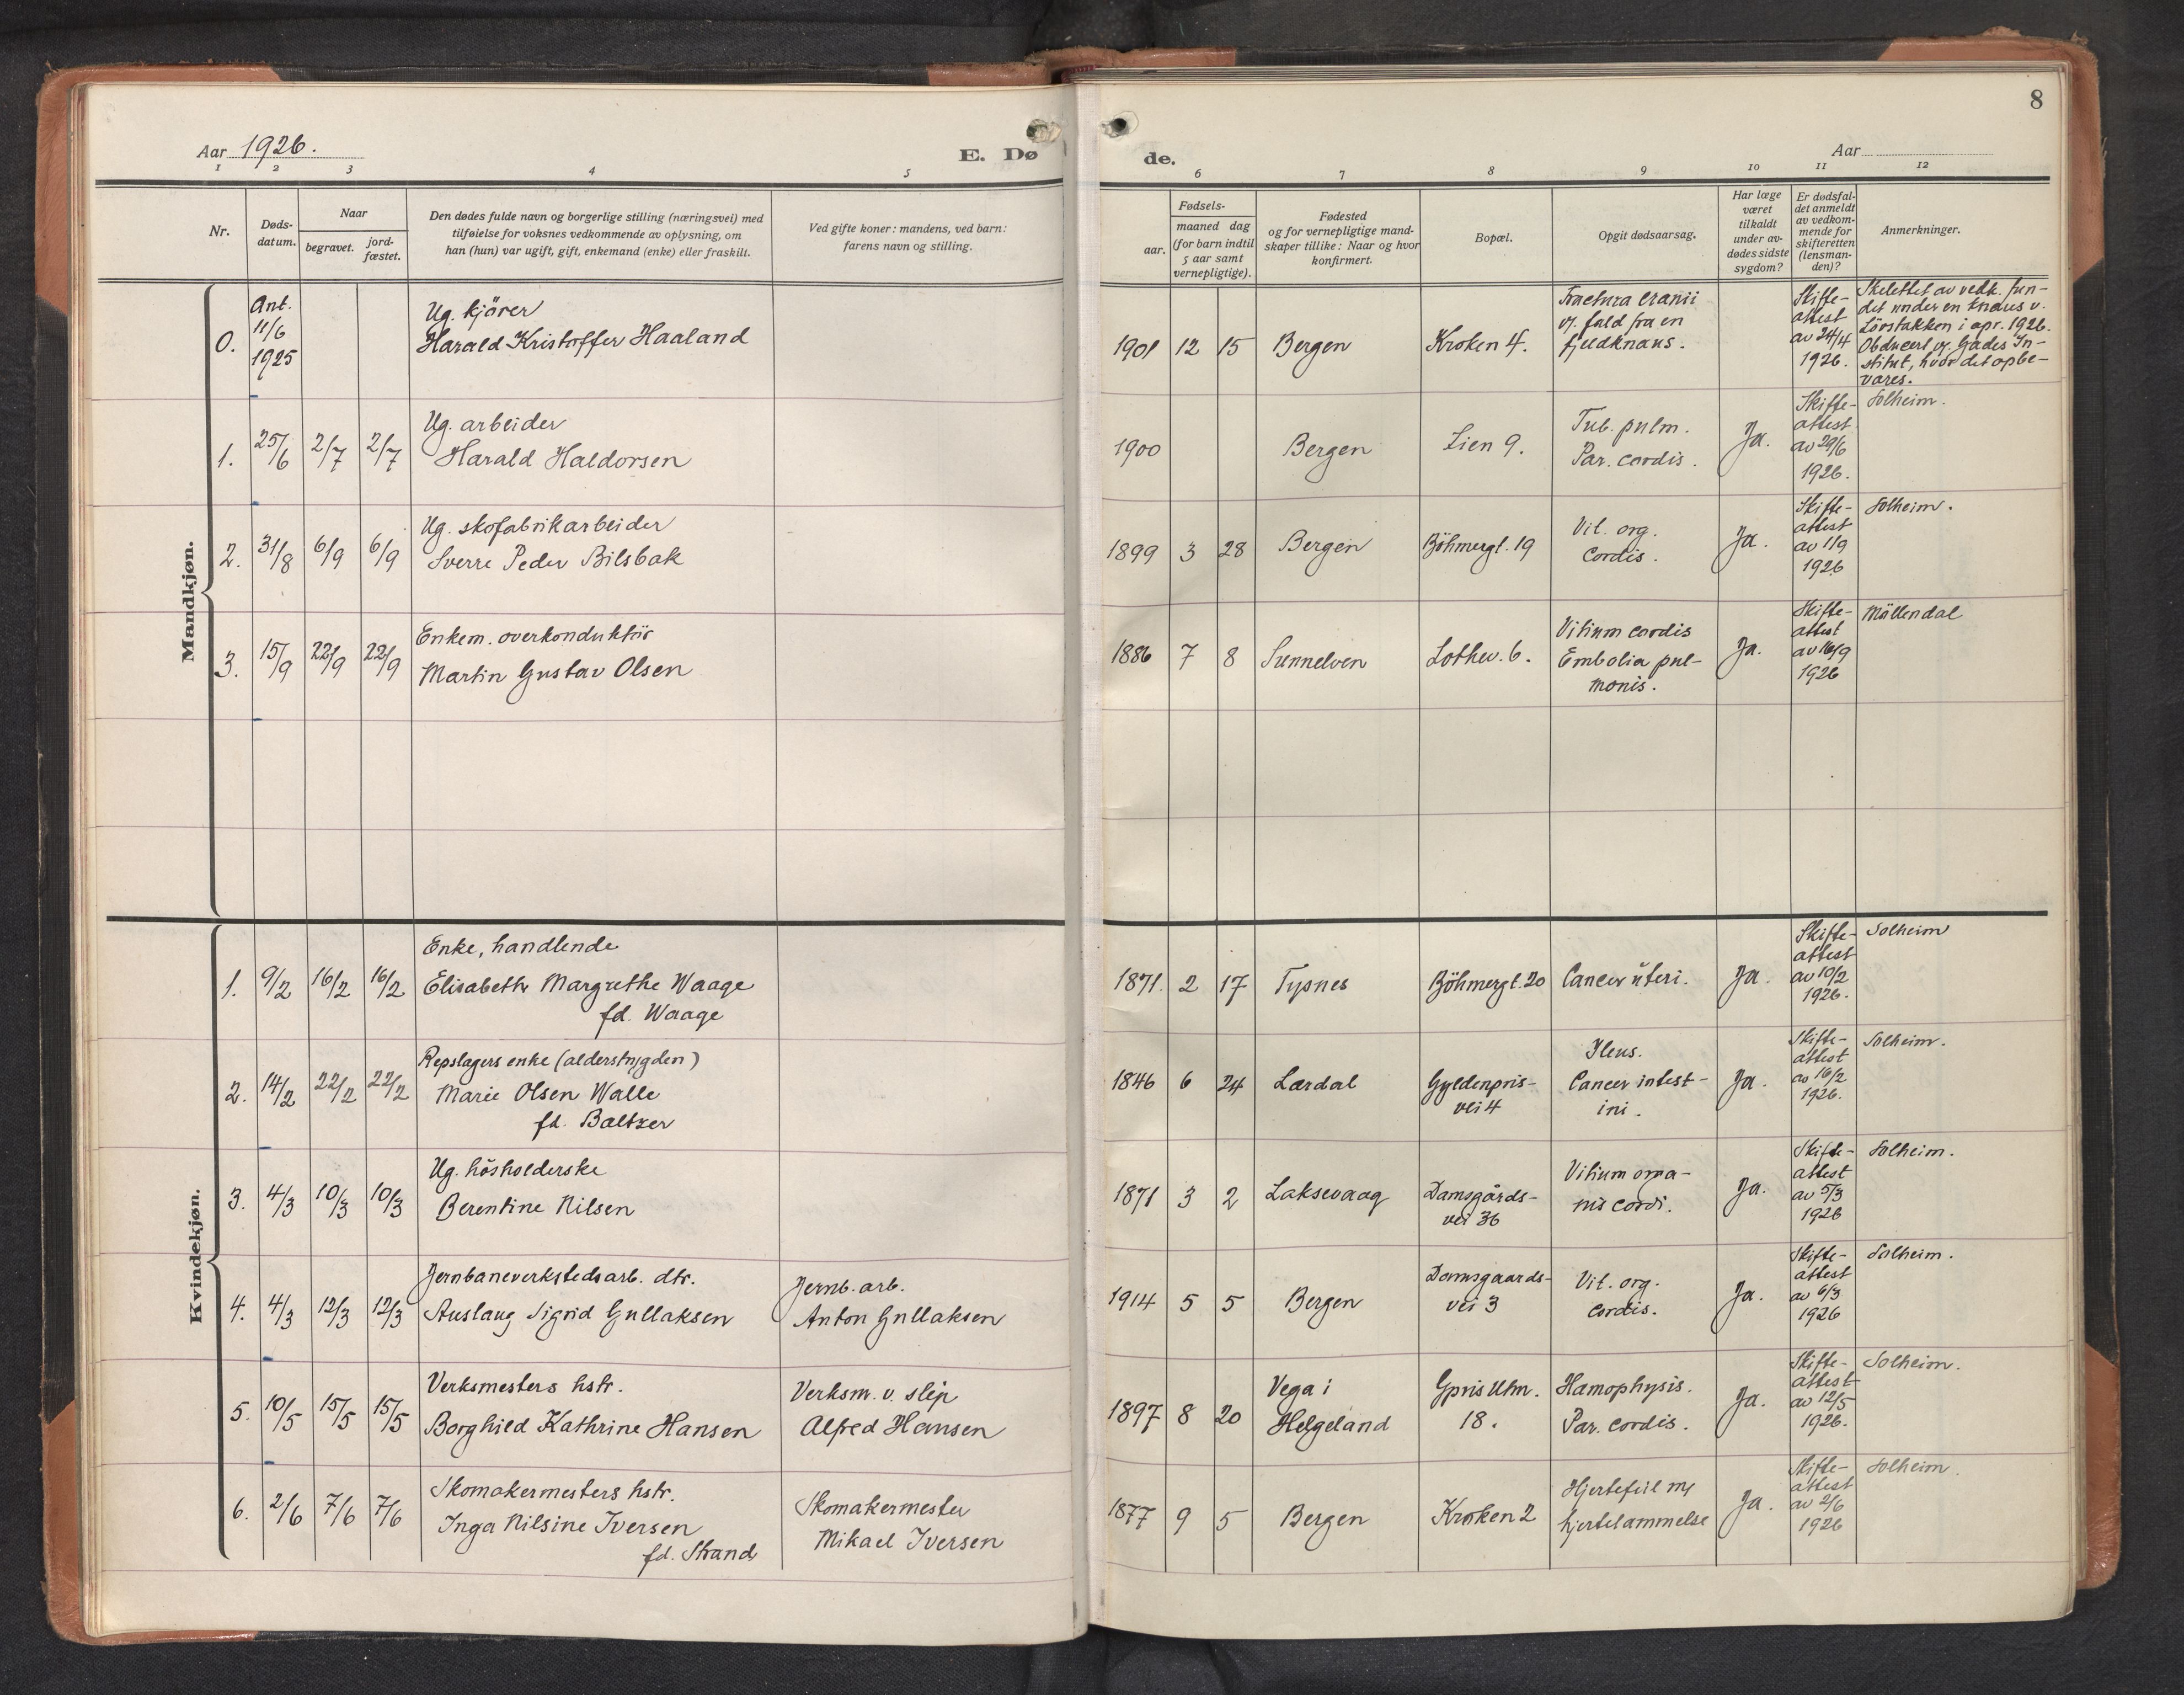 8
Aar 1926.
E. Dø
de.
Aar
1 2 3 4 5
6 7 8 9 10 11 12
Nr.
Døds-
datum.
Naar
begravet.
jord-
fæstet.
Den dødes fulde navn og borgerlige stilling (næringsvei) med
tilføielse for voksnes vedkommende av oplysning, om
han (hun) var ugift, gift, enkemand (enke) eller fraskilt.
Ved gifte koner: mandens, ved barn:
farens navn og stilling.
Fødsels-
aar.
maaned dag
(for barn indtil
5 aar samt
vernepligtige).
Fødested
og for vernepligtige mand-
skaper tillike: Naar og hvor
konfirmert.
Bopæl.
Opgit dødsaarsag.
Har læge
været
tilkaldt
under av-
dødes sidste
sygdom?
Er dødsfal-
det anmeldt
av vedkom-
mende for
skifteretten
(lensman-
den)?
Anmerkninger.
Mandkjøn.
0.
Ant.
11/6
1925
Ug. kjörer
Harald Kristoffer Haaland
1901 12 15 Bergen Kroken 4.
Fractura cranii
v. fald fra en
fjeldknaus.
Skifte-
attest
av 24/4
1926.
Skelettet av vedk. fun-
det under en knaus v.
Lövstakken i apr. 1926.
Obducert v. Gades In-
stitut, hvor det opbe-
vares.
1. 25/6 2/7 2/7
Ug. arbeider
Harald Haldorsen
1900 Bergen Lien 9.
Tub. pulm.
Par. cordis.
Ja.
Skifte-
attest
av 29/6
1926.
Solheim.
2. 31/8 6/9 6/9
Ug. skofabrikarbeider
Sverre Peder Bilsbak
1899 3 28 Bergen Böhmergt. 19
Vit. org.
Cordis.
Ja.
Skifte-
attest
av 1/9
1926
Solheim.
3. 15/9 22/9 22/9
Enkem. overkonduktör
Martin Gustav Olsen
1886 7 8 Sunnelven Lothev. 6.
Vitium cordis
Embolia pul-
monis.
Ja.
Skifte-
attest
av 16/9
1926
Möllendal
Kvindekjøn.
1. 9/2 16/2 16/2
Enke, handlende
Elisabeth Margrethe Waage
fd. Waage
1871. 2 17 Tysnes Böhmergt. 20 Cancer uteri. Ja.
Skifte-
attest
av 10/2
1926.
Solheim
2. 14/2 22/2 22/2
Repslagers enke (alderstrygden)
Marie Olsen Walle
fd. Baltzer
1846 6 24 Lærdal
Gyldenpris-
vei 4
Ileus.
Cancer intest-
ini.
Ja.
Skifte-
attest
av 16/2
1926.
Solheim.
3. 4/3 10/3 10/3
Ug. hösholderske
Berentine Nilsen
1871 3 2 Laksevaag
Damsgårds-
vei 36
Vitium orga-
nis cordi.
Ja.
Skifte-
attest
av 5/3
1926
Solheim.
4. 4/3 12/3 12/3
Jernbaneverkstedsarb. dtr.
Auslaug Sigrid Gullaksen
Jernb. arb.
Anton Gullaksen
1914 5 5 Bergen
Damsgaards-
vei 3
Vit. org.
cordis.
Ja.
Skifte-
attest
av 6/3
1926
Solheim.
5. 10/5 15/5 15/5
Verksmesters hstr.
Borghild Kathrine Hansen
Verksm. v. slip
Alfred Hansen
1897 8 20
Vega i
Helgeland
Gpris Uhn.
18.
Hæmophysis.
Par. cordis.
Ja.
Skifte-
attest
av 12/5
1926.
Solheim.
6. 2/6 7/6 7/6
Skomakermesters hstr.
Inga Nilsine Iversen
fd. Strand
Skomakermester
Mikael Iversen
1877 9 5 Bergen Kroken 2
Hjertefeil m/
hjertelammelse
Ja.
Skifte-
attest
av 2/6
1926
Solheim.